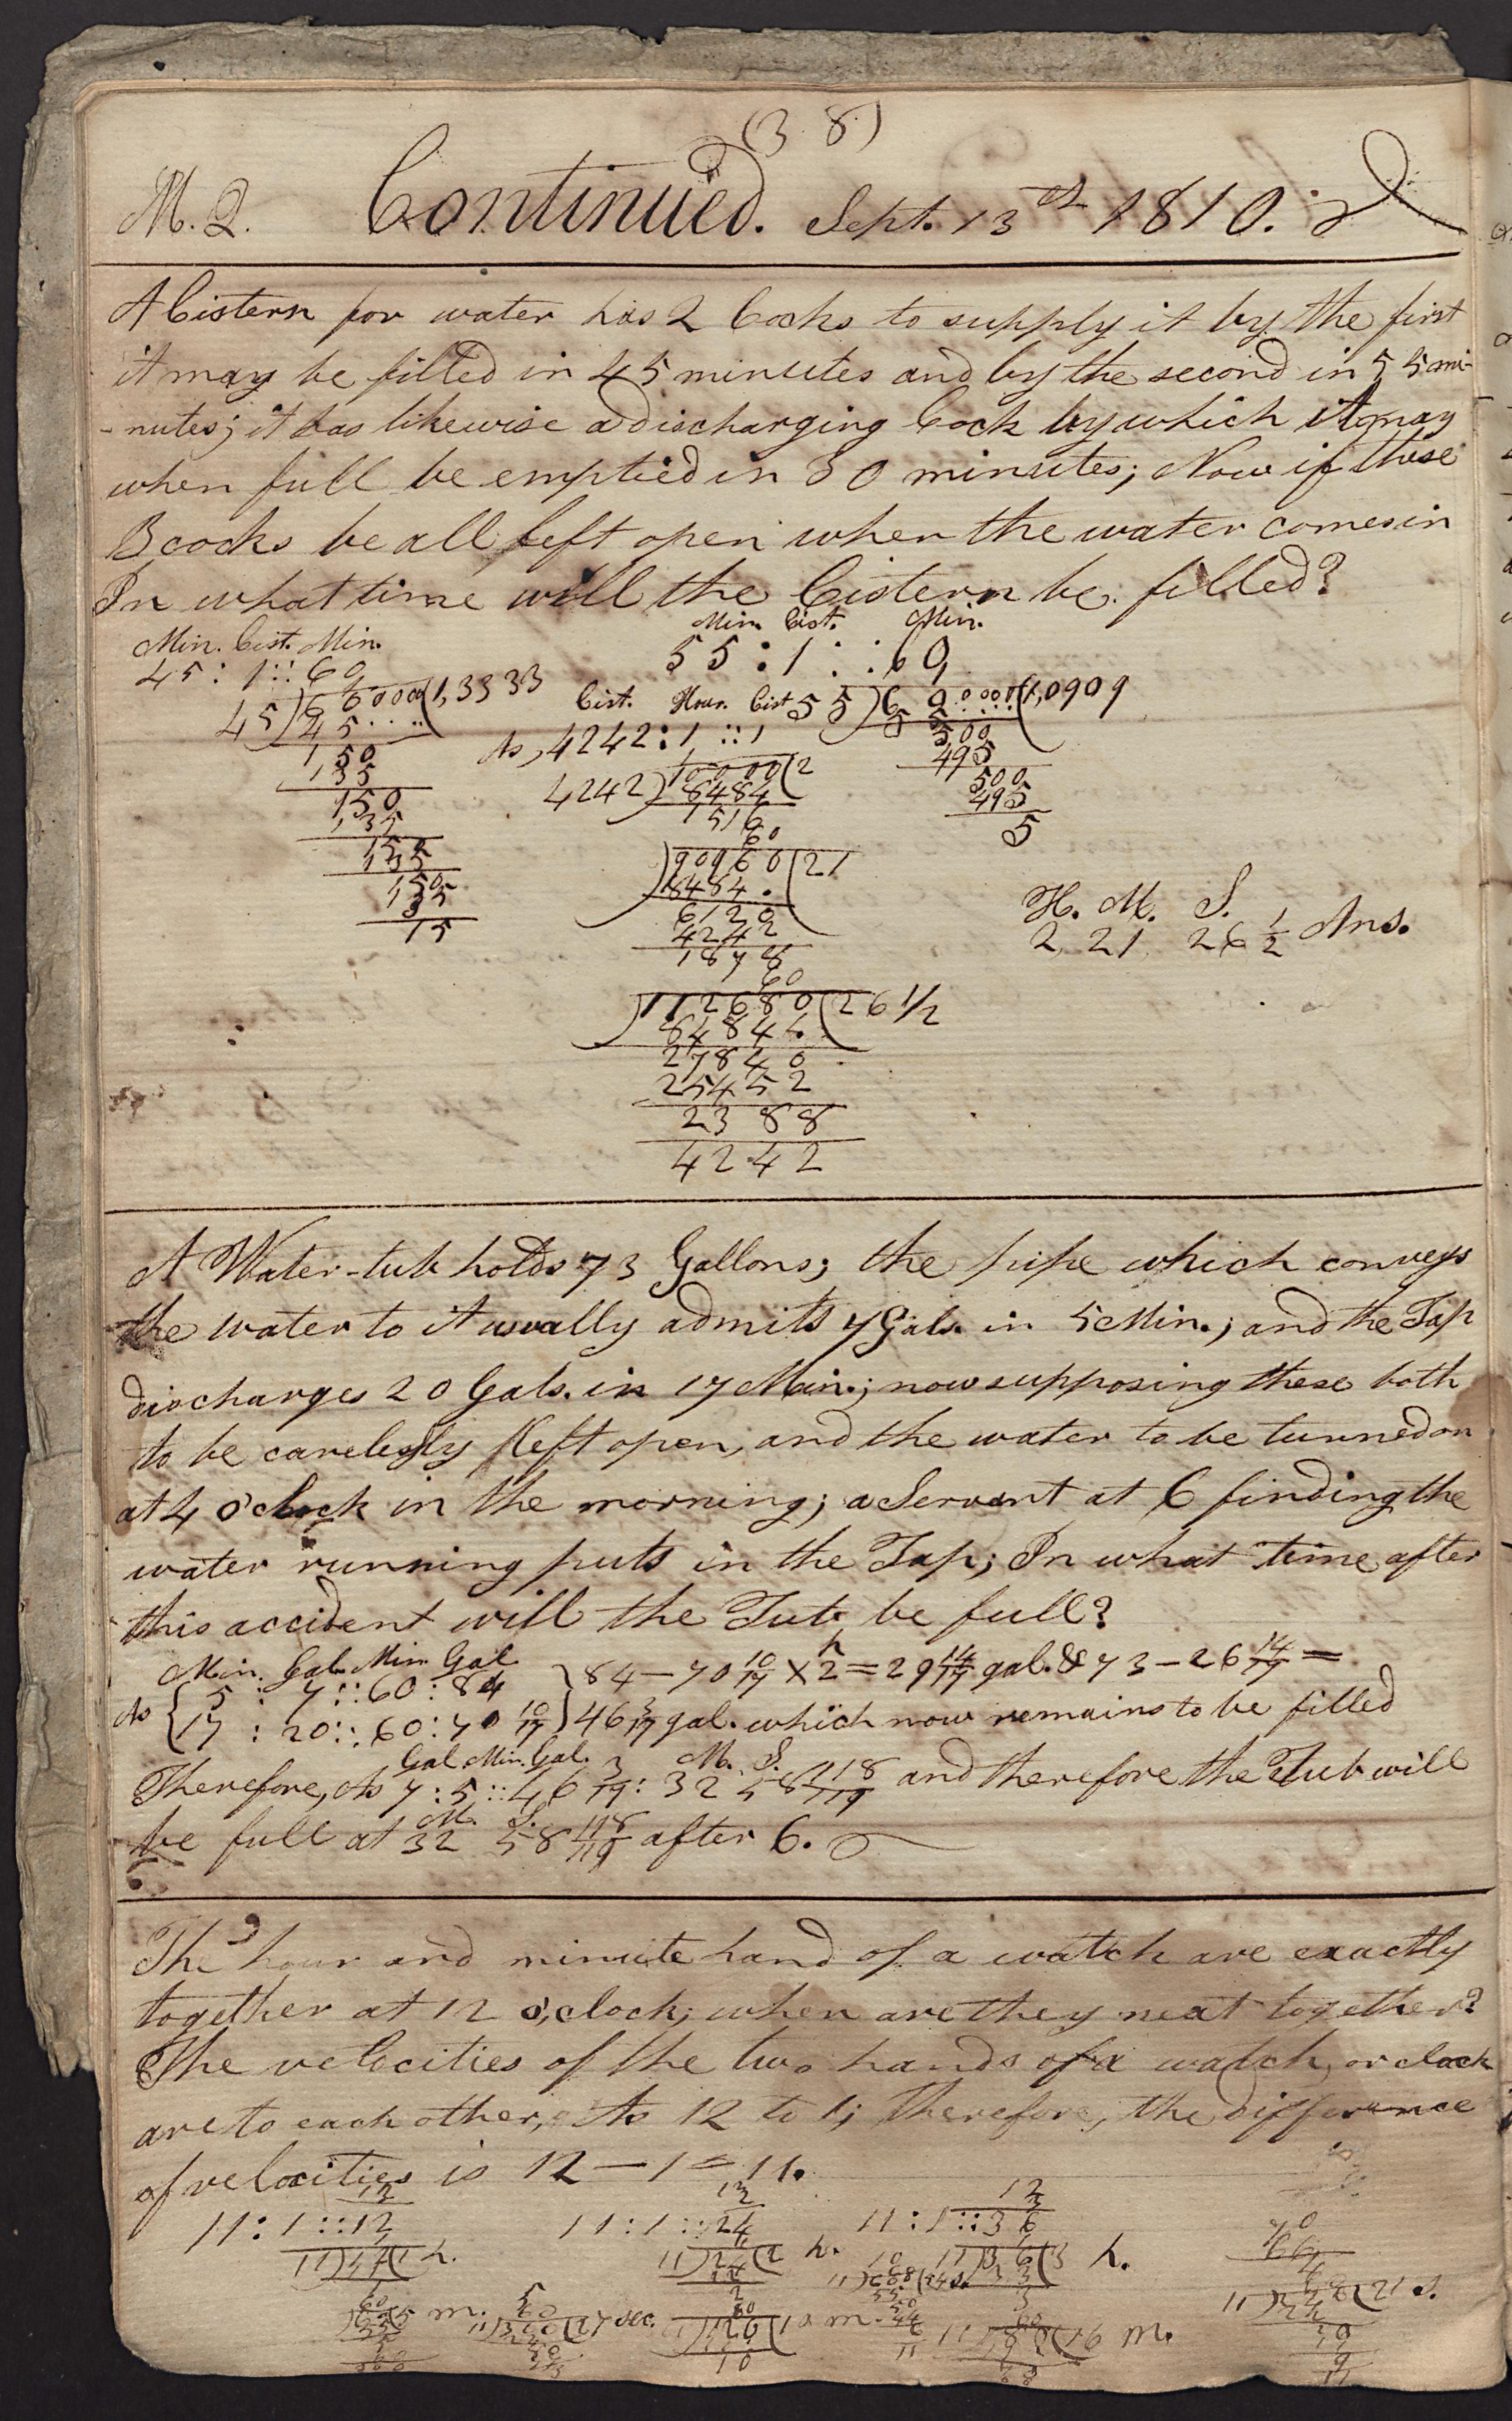 (38)
M. Q. Continued. Sept. 13th 1810.
A Cistern for water has 2 Cocks to supply it by the first
it may be filled in 45 minutes and by the second in 55 mi-
-nutes; it has likewise a discharging Cock by which it may
when full be emptied in 30 minutes; Now if these
3 cocks be all left open when the water comes in
In what time will the Cistern be filled?
Min. Cist. Min.
45 : 1 :: 60
45)600000(1,3333
45
150
135
150
135
150
135
150
135
15
Min. Cist. Min.
55 : 1 :: 60
55)600000(1,0909
55
500
495
500
495
5
Cist. Hour. Cist
As, 4242 : 1 :: 1
4242)10000(2
8484
1516
60
)90960(21
8484
6120
4242
1878
60
)112680(26 1/2
8484
27840
25452
2388
4242
H. M. S.
2 21 26 1/2 Ans.
A Water-tub holds 73 Gallons; the pipe which conveys
the water to it usually admits 7 Gals. in 5 Min.; and the Tap
discharges 20 Gals. in 17 Min.; now supposing these both
to be carelessly left open, and the water to be turned on
at 4 o'clock in the morning; a Servant at 6 finding the
water running puts in the Tap; In what time after
this accident will the Tub be full?
Min. Gal. Min. Gal
As { 5 : 7 :: 60 : 84 } 84 — 70 10/17 × 2 h = 29 14/17 gal. & 73 — 26 14/17 =
17 : 20 :: 60 : 70 10/17 } 46 3/17 gal. which now remains to be filled
Gal. Min. Gal. M. S.
Therefore, As 7 : 5 :: 46 3/19 : 32 58 118/119 and therefore the Tub will
M. S.
be full at 32 58 118/119 after 6.
The hour and minute hand of a watch are exactly
together at 12 o'clock; when are they next together?
The velocities of the two hands of a watch, or clock
are to each other, As 12 to 1; therefore, the difference
of velocities is 12 — 1 = 11.
12
11 : 1 :: 12
h.
m.
27 sec.
12
11 : 1 :: 24
11)24(2 h.
m.
12
11 : 1 :: 36
11)36(3 h.
16 m.
21 s.